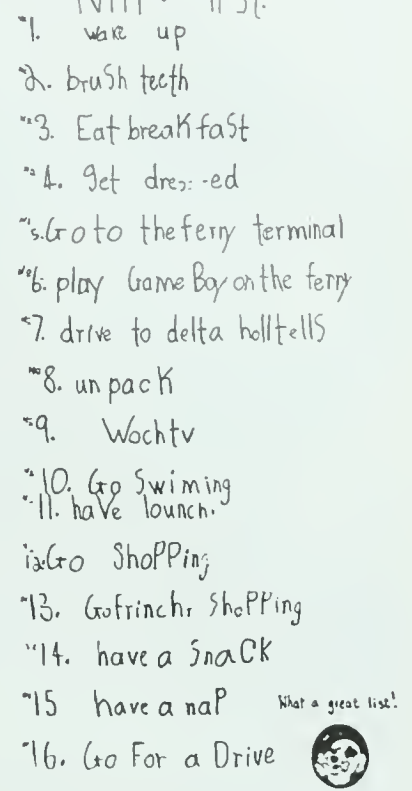 1. wake up
2. brush teeth
3. Eat breakfast
4. get dressed
5. Go to the ferry terminal
6. play Game Boy on the ferry
7. drive to delta holltells
8. unpack
9. Wochtv
10. Go Swiming
11. have lounch.
12. Go Shopping
13. Go Shopping
14. have a snack
15 have a nap
What a great list!
16. Go For a Drive